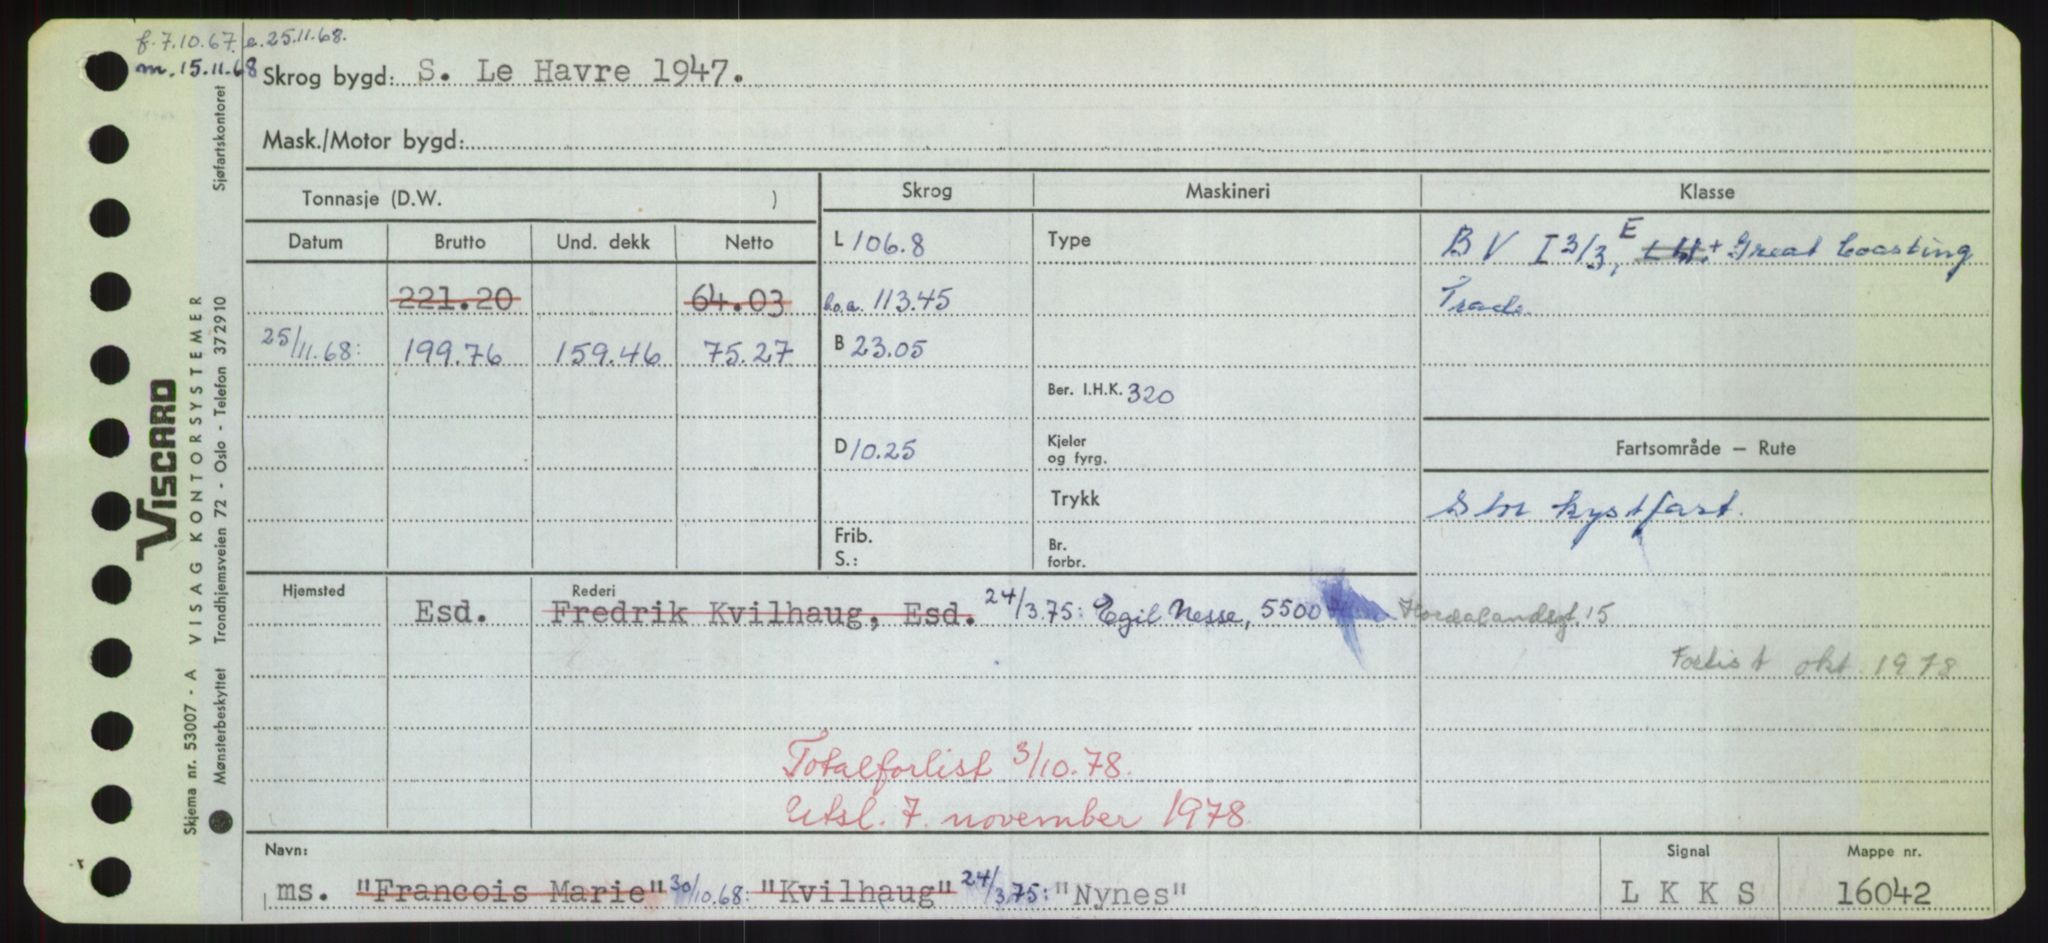 f. 7.10.67. e. 25.11.68.
m. 15.11.68
Skrog bygd: S. Le Havre 1947.
Mask./Motor bygd:
Tonnasje (D.W. )
Skrog
Maskineri
Klasse
Datum
Brutto
Und. dekk
Netto
L 106.8
Type
BV I 3/3, E + Great Coasting
Trade
221.20
64.03
l.o.a. 113.45
25/11.68:
199.76
159.46
75.27
B 23.05
Ber. I.H.K. 320
D 10.25
Kjeler
og fyrg.
Fartsområde — Rute
Trykk
Stn kystfart.
Frib.
S.:
Br.
forbr.
Hjemsted
Rederi
Esd.
Fredrik Kvilhaug, Esd. 24/3.75: Egil Nesse, 5500 Hordalandsgt. 15
Forlist okt. 1978
Totalforlist 3/10.78.
Utsl. 7. november 1978.
Navn:
ms. "Francois Marie" 30/10.68: "Kvilhaug" 24/3.75: "Nynes"
Signal
L K K S
Mappe nr.
16042
Sjøfartskontoret
VISCARD
VISAG KONTORSYSTEMER
Skjema nr. 53007 - A
Mønsterbeskyttet Trondhjemsveien 72 - Oslo - Telefon 372910